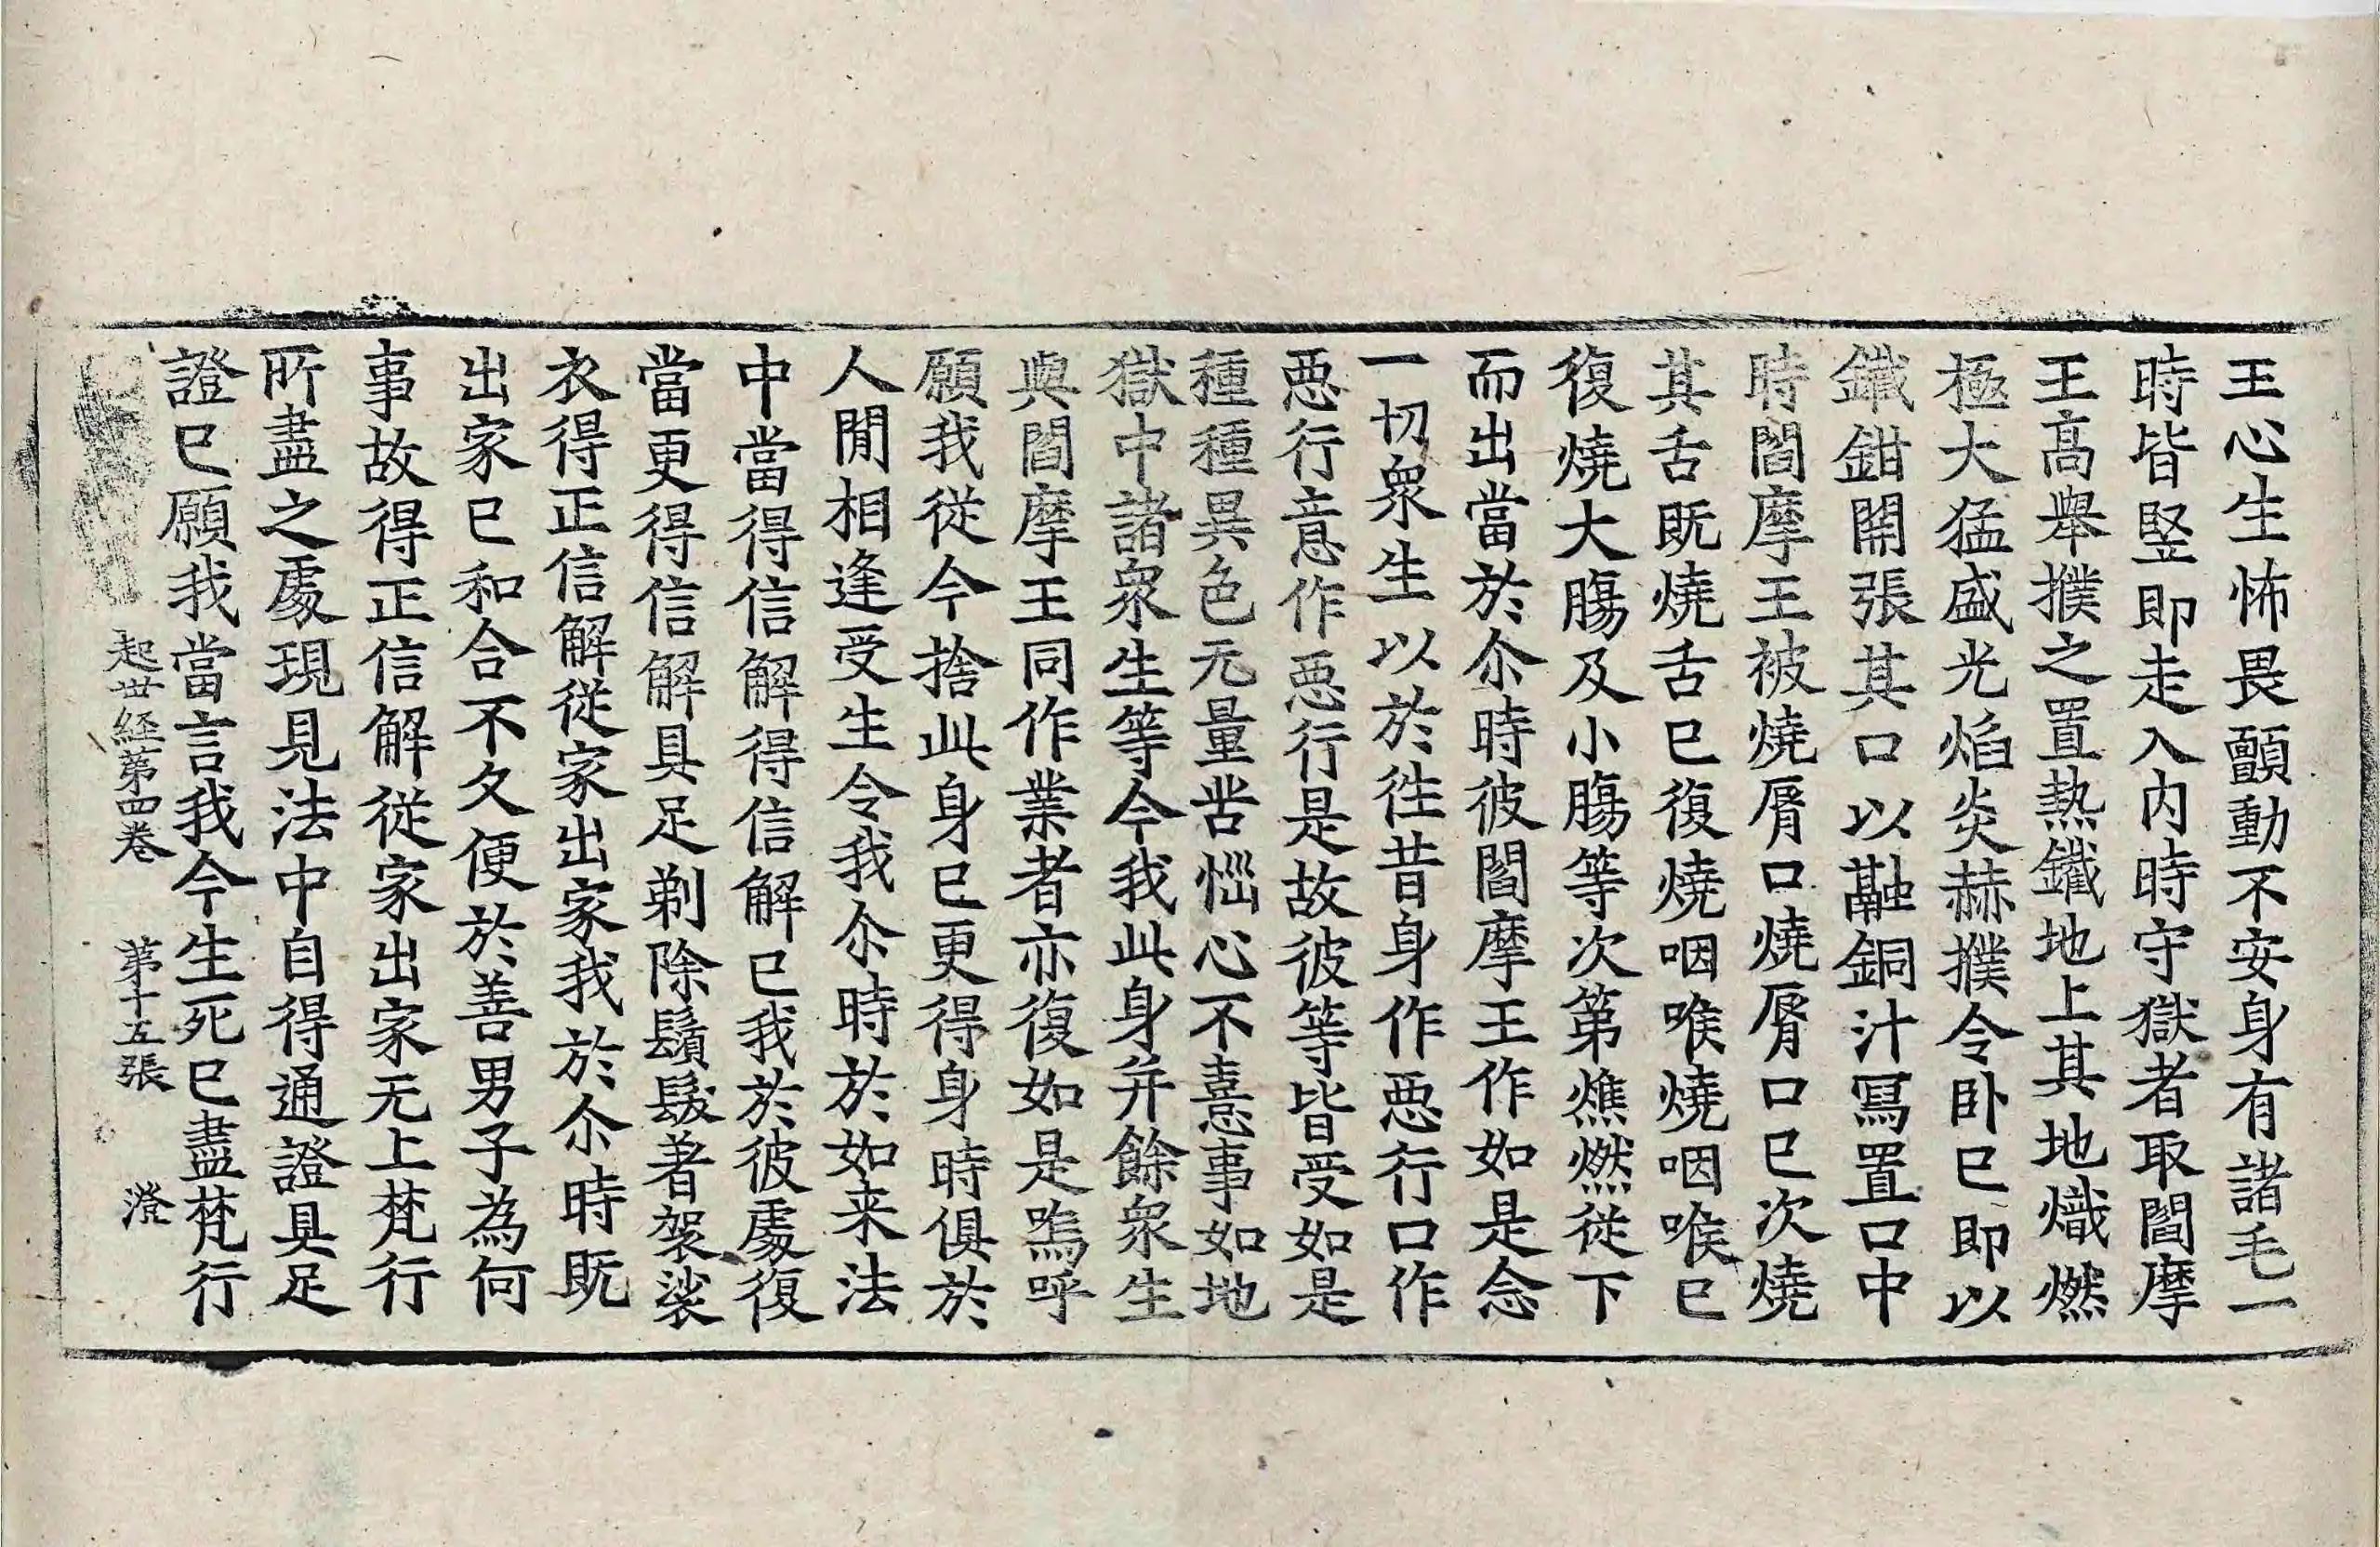 王心生怖畏顫動不安身有諸毛一
時皆竪即走入内時守獄者取閻摩
王高舉撲之置熱鐵地上其地熾燃
極大猛盛光焰炎赫撲令卧已即以
鐵鉗開張其口以融銅汁寫置口中
時閻摩王被燒脣口燒脣口已次燒
其舌既燒舌已復燒咽喉燒咽喉已
復燒大膓及小膓等次第燋燃從下
而出當於尒時彼閻摩王作如是念
一切衆生以於徃昔身作惡行口作
惡行意作惡行是故彼等皆受如是
種種異色无量苦惱心不憙事如地
獄中諸衆生等今我此身并餘衆生
與閻摩王同作業者亦復如是嗚呼
願我從今捨此身已更得身時俱於
人閒相逢受生令我尒時於如来法
中當得信解得信解已我於彼處復
當更得信解具足剃除鬚髮著袈裟
衣得正信解從家出家我於尒時既
出家已和合不久便於善男子為何
事故得正信解從家出家无上梵行
所盡之處現見法中自得通證具足
證已願我當言我今生死已盡梵行
起世経第四卷 第十五張 澄